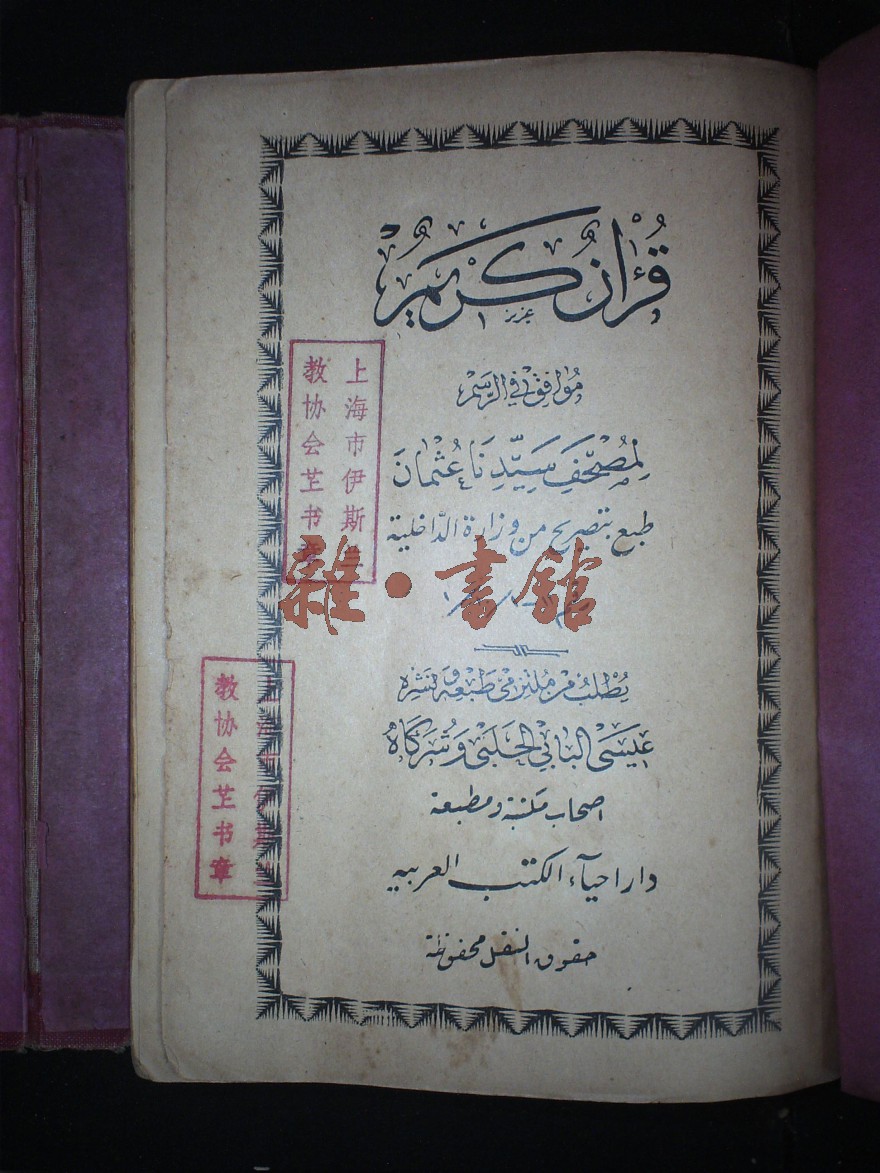 قُرْءَانٌ كَرِيمٌ
عزيز
مُوَافِقْ فِي الرَّسْمِ
لِمُصْحَفِ سَيِّدِنَا عُثْمَانَ
طبع بتصريح من وزارة الدّاخلية
يُطْلَبُ مِنْ مُلْتَزِمِيْ طَبْعِهِ وَنَشْرِهِ
عِيسَى البَابِي الحَلَبِي وَشُرَكَاهُ
اصحاب مكتبة ومطبعة
دار احياء الكتب العربيه
حقوق النقل محفوظة
上海市伊斯
教协会芷书章
雜·書館
上海市伊斯
教协会芷书章